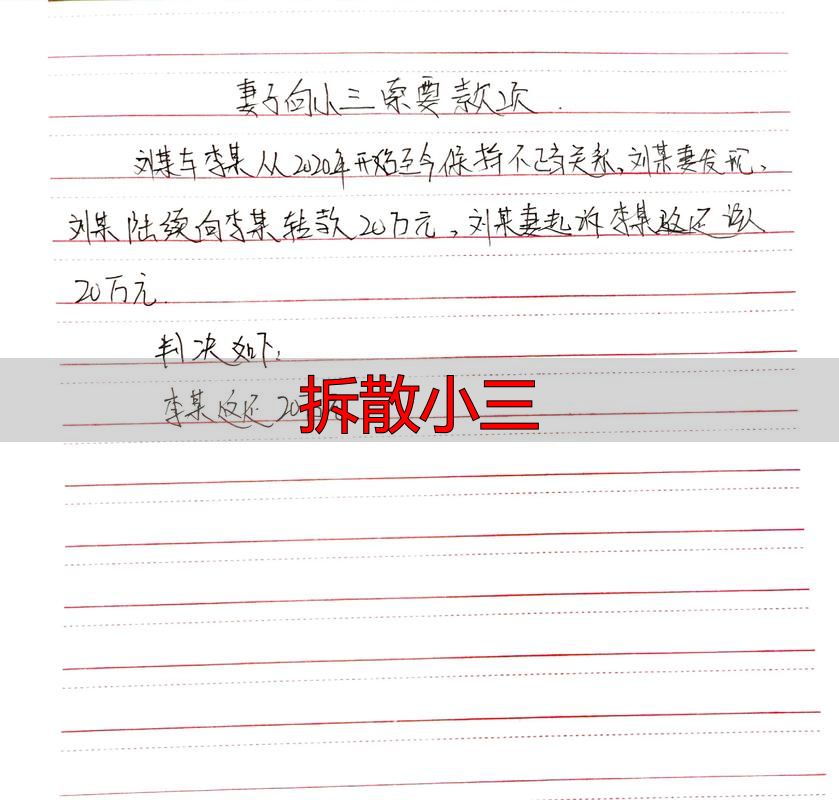 妻子向小三索要款项.
刘某与李某从2020年开始至今保持不正当关系,刘某妻发现,
刘某陆续向李某转款20万元,刘某妻起诉李某返还
20万元.
判决如下:
李某返还20
拆散小三